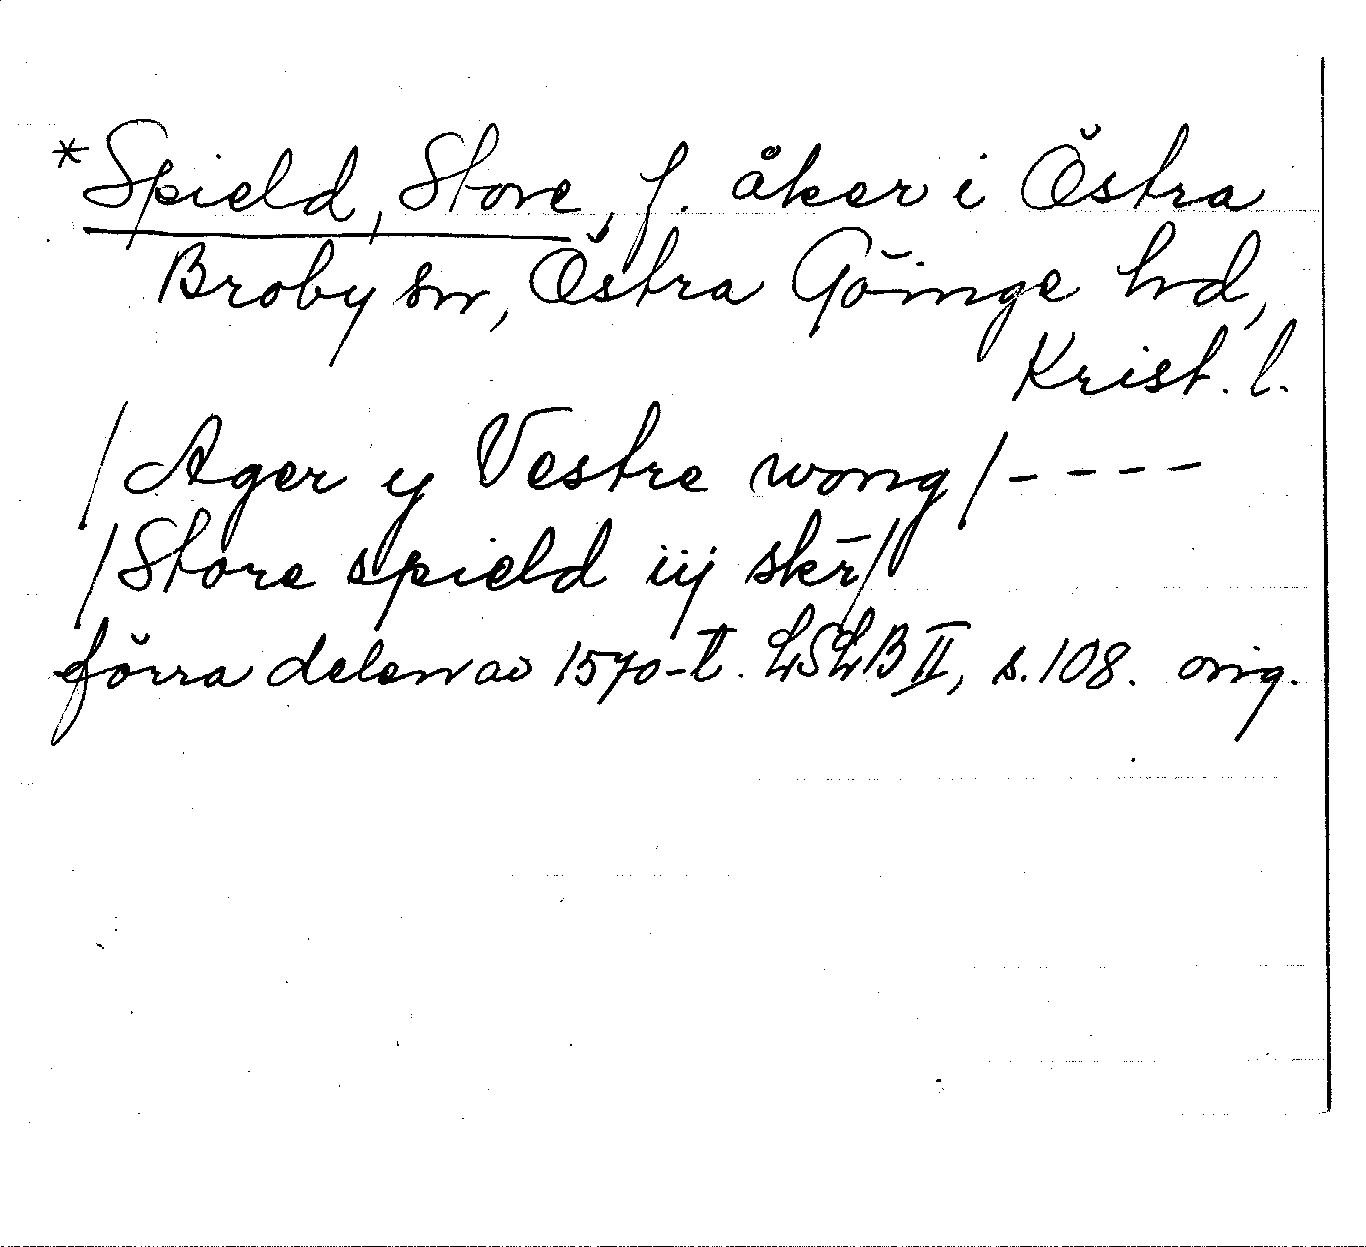 *Spield, Store, f. åker i Östra
Broby sn, Östra Göinge hd,
Krist. l.
/Ager y Vestre wong/----
/Store spield iij skr̄/
förra delen av 1570-t. LSLB II, s. 108. orig.